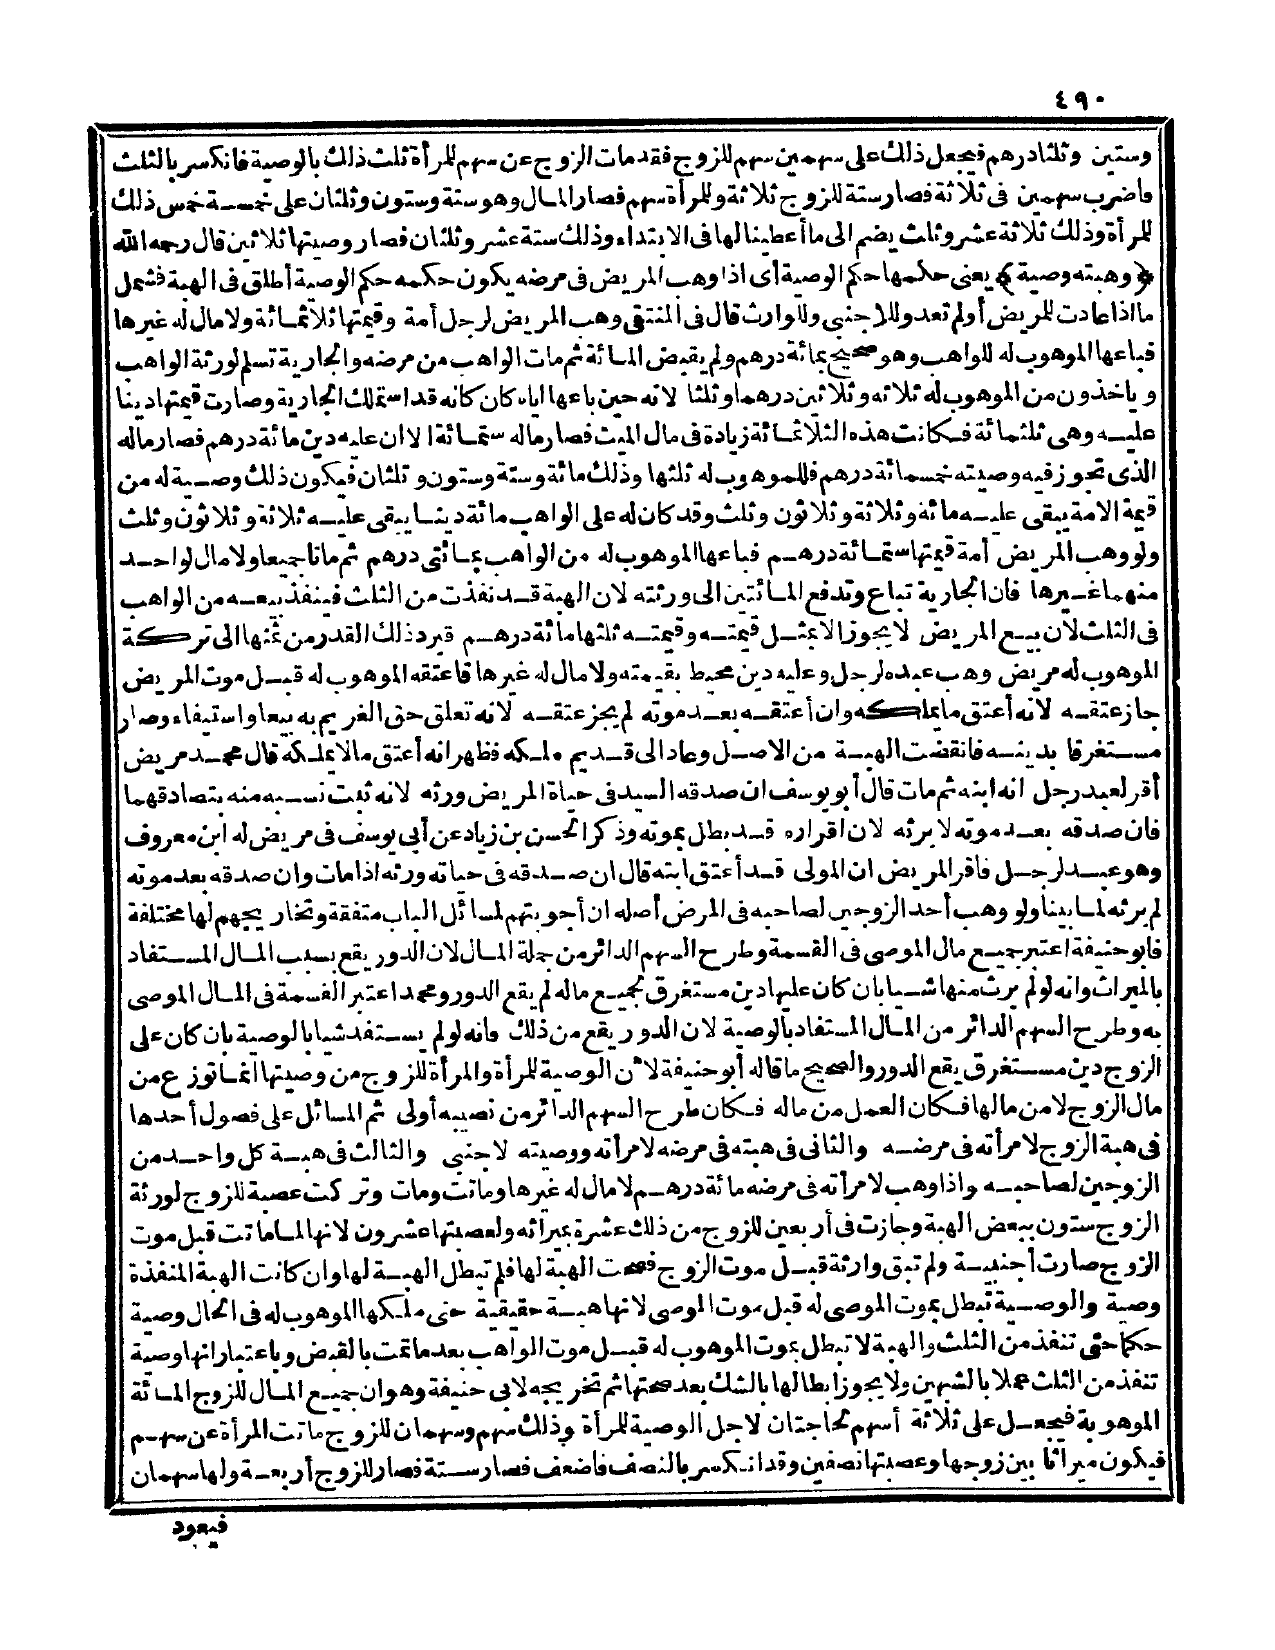 ٤٩٠
وستين وثلثا درهم فيجعل ذلك على سهمين سهم للزوج فقد مات الزوج عن سهم للمرأة ثلث ذلك بالوصية فانكسر بالثلث
فاضرب سهمين فى ثلاثة فصار ستة للزوج ثلاثة وللمرأة سهم فصار المال وهو ستة وستون وثلثان على خمسة خمس ذلك
للمرأة وذلك ثلاثة عشر وثلث يضم الى ما أعطينا لها فى الابتداء وذلك ستة عشر وثلثان فصار وصيتها ثلاثين قال رحمه الله
﴿وهبته وصية﴾ يعنى حكمها حكم الوصية أى اذا وهب المريض فى مرضه يكون حكمه حكم الوصية أطلق فى الهبة فشمل
ما اذا عادت للمريض أو لم تعد وللاجنبى وللوارث قال فى المنتقى وهب المريض لرجل أمة وقيمتها ثلاثمائة ولا مال له غيرها
فباعها الموهوب له للواهب وهو صحيح بمائة درهم ولم يقبض المائة ثم مات الواهب من مرضه والجارية تسلم لورثة الواهب
ويأخذون من الموهوب له ثلاثه وثلاثين درهما وثلثا لانه حين باعها اياه كان كانه قد استهلك الجارية وصارت قيمتها دينا
عليه وهى ثلثمائة فكانت هذه الثلاثمائة زيادة فى مال الميت فصار ماله ستمائة الا ان عليه دين مائة درهم فصار ماله
الذى تجوز فيه وصيته خمسمائة درهم فللموهوب له ثلثها وذلك مائة وستة وستون وثلثان فيكون ذلك وصية له من
قيمة الامة يبقى عليه مائه وثلاثة وثلاثون وثلث وقد كان له على الواهب مائة دينا يبقى عليه ثلاثة وثلاثون وثلث
ولو وهب المريض أمة قيمتها ستمائة درهم فباعها الموهوب له من الواهب بمائتى درهم ثم ماتا جميعا ولا مال لواحد
منهما غيرها فان الجارية تباع وتدفع المائتين الى ورثته لان الهبة قد نفذت من الثلث فينفذ بيعه من الواهب
فى الثلث لان بيع المريض لا يجوز الا بمثل قيمته وقيمته ثلثها مائة درهم فيرد ذلك القدر من ثمنها الى تركة
الموهوب له مريض وهب عبده لرجل وعليه دين محيط بقيمته ولا مال له غيرها فاعتقه الموهوب له قبل موت المريض
جاز عتقه لانه أعتق ما يملكه وان أعتقه بعد موته لم يجز عتقه لانه تعلق حق الغريم به بيعا واستيفاء وصار
مستغرقا بدينه فانقضت الهبة من الاصل وعاد الى قديم ملكه فظهر انه أعتق مالا يملكه قال محمد مريض
أقر لعبد رجل انه ابنه ثم مات قال أبو يوسف ان صدقه السيد فى حياة المريض ورثه لانه ثبت نسبه منه بتصادقهما
فان صدقه بعد موته لا يرثه لان اقراره قد بطل بموته وذكر الحسن بن زياد عن أبى يوسف فى مريض له ابن معروف
وهو عبد لرجل فاقر المريض ان المولى قد أعتق ابنه قال ان صدقه فى حياته ورثه اذا مات وان صدقه بعد موته
لم يرثه لما بينا ولو وهب أحد الزوجين لصاحبه فى المرض أصله ان أجوبتهم لمسائل الباب متفقة وتخاريجهم لها مختلفة
فابو حنيفة اعتبر جميع مال الموصى فى القسمة وطرح السهم الدائر من جملة المال لان الدور يقع بسبب المال المستفاد
بالميراث وانه لو لم يرث منها شيا بان كان عليها دين مستغرق لجميع ماله لم يقع الدور ومحمد اعتبر القسمة فى المال الموصى
به وطرح السهم الدائر من المال المستفاد بالوصية لان الدور يقع من ذلك فانه لو لم يستفد شيا بالوصية بان كان على
الزوج دين مستغرق يقع الدور والصحيح ما قاله أبو حنيفة لان الوصية للمرأة والمرأة للزوج من وصيتها انما توزع من
مال الزوج لا من مالها فكان العمل من ماله فكان طرح السهم الدائر من نصيبه أولى ثم المسائل على فصول أحدها
فى هبة الزوج لامرأته فى مرضه والثانى فى هبته فى مرضه لامرأته ووصيته لاجنبى والثالث فى هبة كل واحد من
الزوجين لصاحبه واذا وهب لامرأته فى مرضه مائة درهم لا مال له غيرها وماتت ومات وتركت عصبة للزوج لورثة
الزوج ستون ببعض الهبة وجازت فى أربعين للزوج من ذلك عشرة بميراثه ولعصبتها عشرون لانها لما ماتت قبل موت
الزوج صارت أجنبية ولم تبق وارثة قبل موت الزوج فصحت الهبة لها فلم تبطل الهبة لها وان كانت الهبة المنفذة
وصية والوصية تبطل بموت الموصى له قبل موت الموصى لانها هبة حقيقية حتى ملكها الموهوب له فى الحال وصية
حكما حتى تنفذ من الثلث والهبة لا تبطل بموت الموهوب له قبل موت الواهب بعد ما تمت بالقبض وباعتبار انها وصية
تنفذ من الثلث عملا بالشبهين ولا يجوز ابطالها بالشك بعد صحتها ثم تخريجه لابى حنيفة وهو ان جميع المال للزوج المائة
الموهوبة فيجعل على ثلاثة أسهم لحاجتان لاجل الوصية للمرأة وذلك سهم وسهمان للزوج ماتت المرأة عن سهم
فيكون ميراثا بين زوجها وعصبتها نصفين وقد انكسر بالنصف فاضعف فصار ستة فصار للزوج أربعة ولها سهمان
فيعود